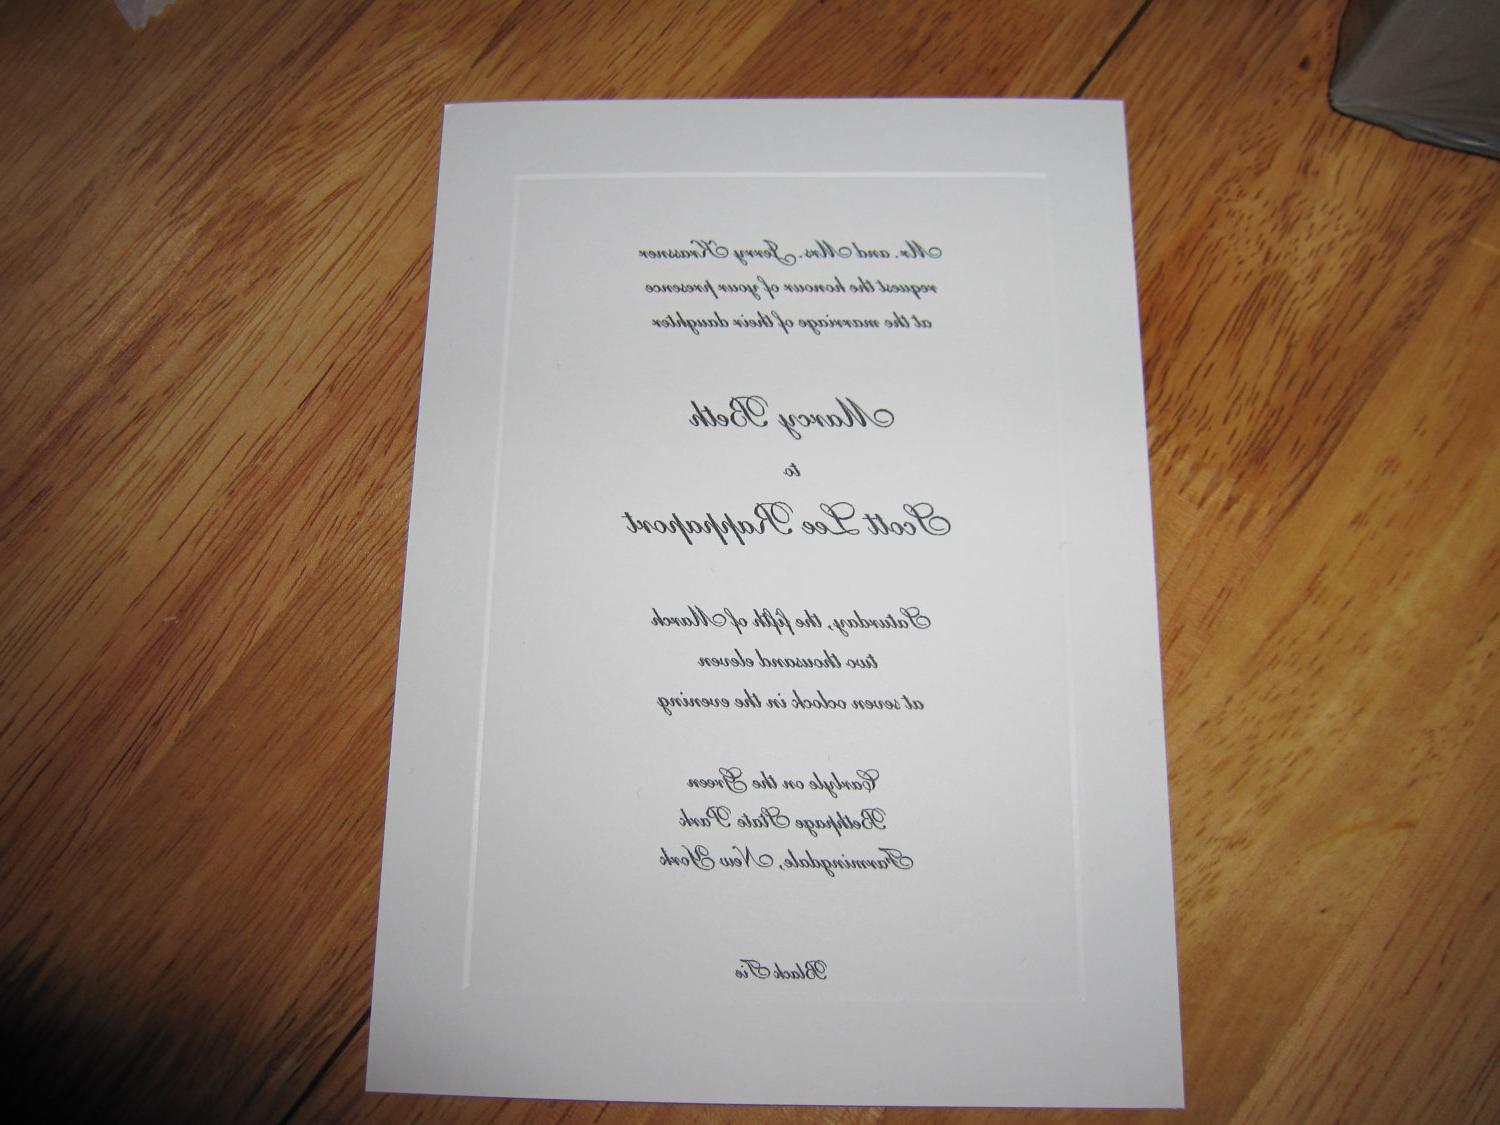 Mr. and Mrs. Jerry Krassner
request the honour of your presence
at the marriage of their daughter
Marcy Beth
to
Scott Lee Rappaport
Saturday, the fifth of March
two thousand eleven
at seven oclock in the evening
Carlyle on the Green
Bethpage State Park
Farmingdale, New York
Black Tie